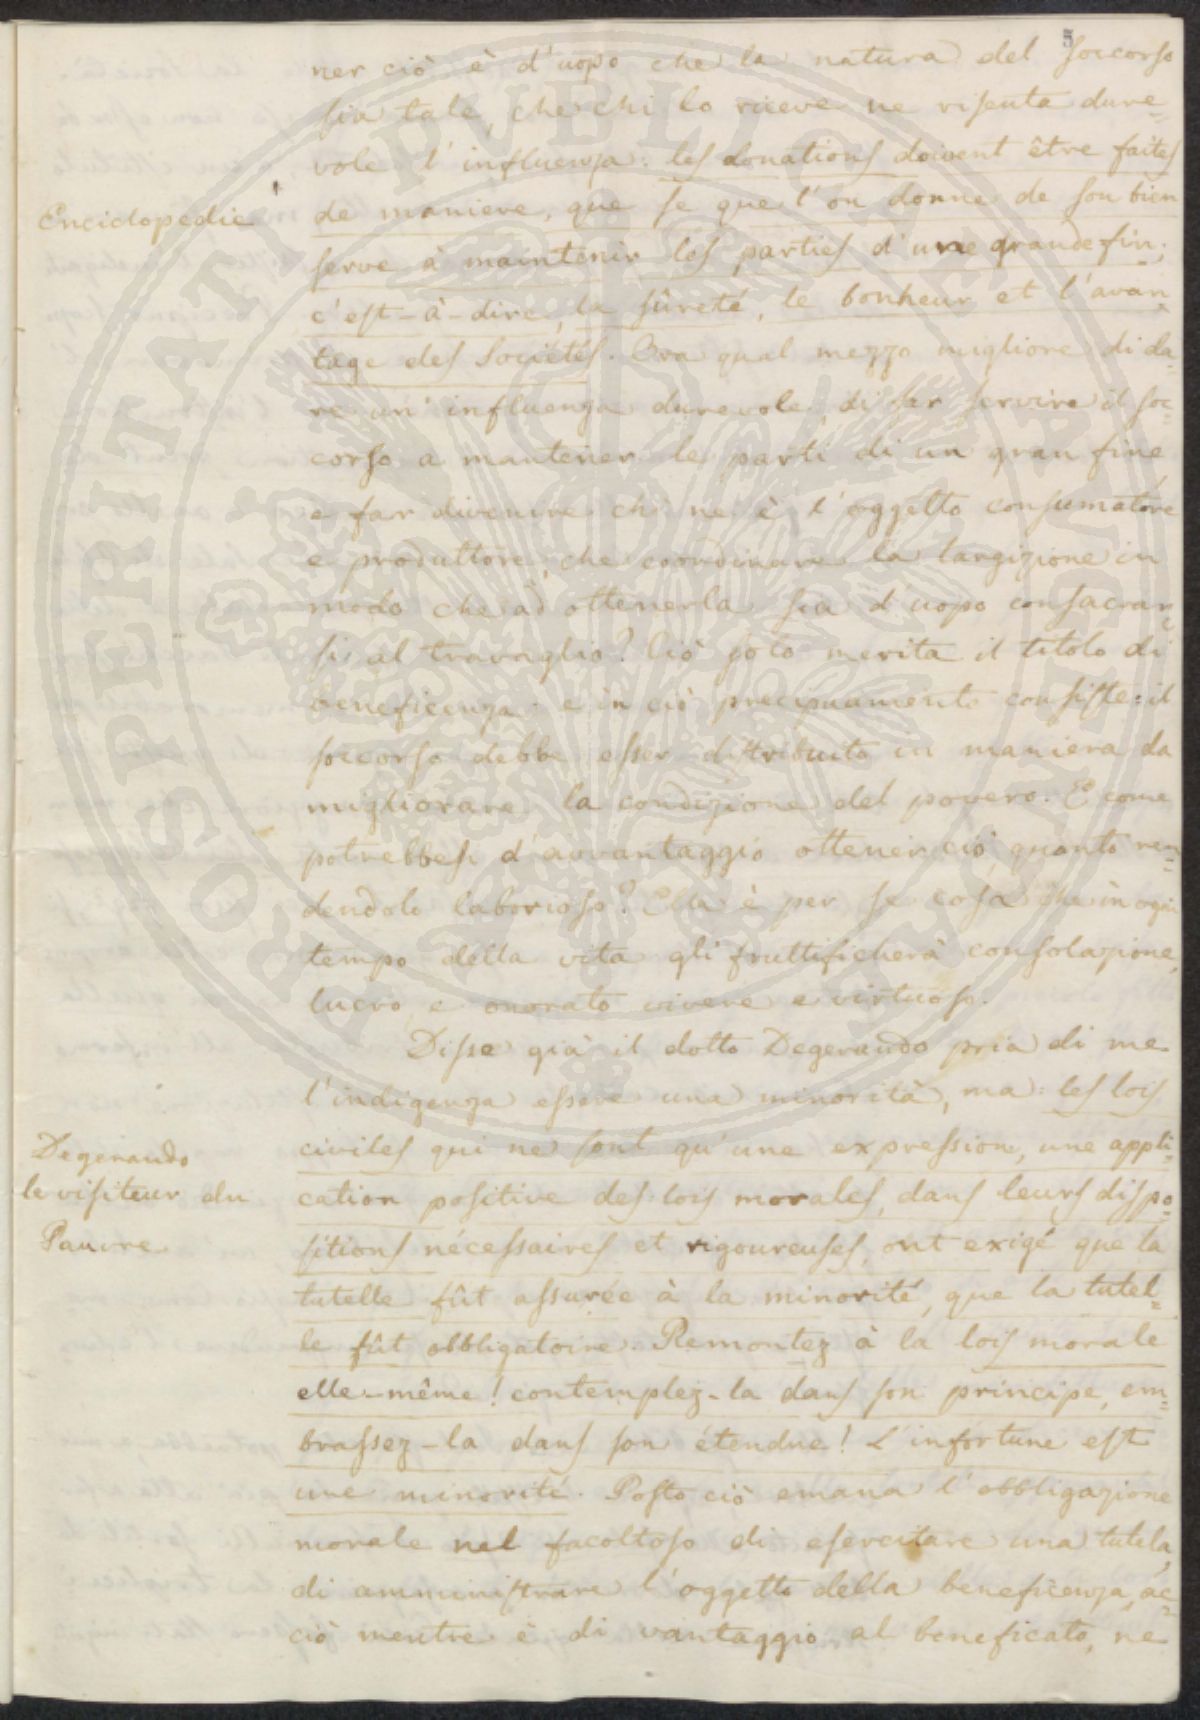 5
ner ciò è d'uopo che la natura del soccorso
sia tale, che chi lo riceve ne risenta dure=
vole l'influenza: les donations doivent être faites
Enciclopedie
de maniere, que se que l'on donne de son bien
serve à maintenir les parties d'une grande fin;
c'est-à-dire, la sûreté, le bonheur et l'avan=
tage des Societés. Ora qual mezzo migliore di da=
re un' influenza durevole di far servire il soc=
corso a mantener le parti di un gran fine,
e far divenire chi ne è l'oggetto consumatore
e produttore, che coordinare la largizione in
modo che ad ottenerla sia d'uopo consacrar=
si al travaglio? Ciò solo merita il titolo di
beneficenza: e in ciò precipuamente consiste: il
soccorso debbe esser distribuito in maniera da
migliorare la condizione del povero. E come
potrebbesi d'avvantaggio ottener ciò quanto ren=
dendolo laborioso? Ella è per se cosa che in ogni
tempo della vita gli fruttificherà consolazione,
lucro e onorato vivere e virtuoso.
Disse già il dotto Degerando pria di me
l'indigenza essere una minorità, ma: les lois
Degerando
le visiteur du
Pauvre
civiles qui ne sont qu'une expression, une appli=
cation positive des lois morales, dans leurs dispo=
sitions nécessaires et rigoureuses, ont exigé que la
tutelle fût assurée à la minorité, que la tutel=
le fût obbligatoire. Remontez à la lois morale
elle-même! contemplez-la dans son principe, em=
brassez-la dans son étendue! L'infortune est
une minorité. Posto ciò emana l'obbligazione
morale nel facoltoso di esercitare una tutela,
di amministrare l'oggetto della beneficenza, ac=
ciò mentre è di vantaggio al beneficato, ne
PROSPERITATI PUBLICAE AUGENDAE